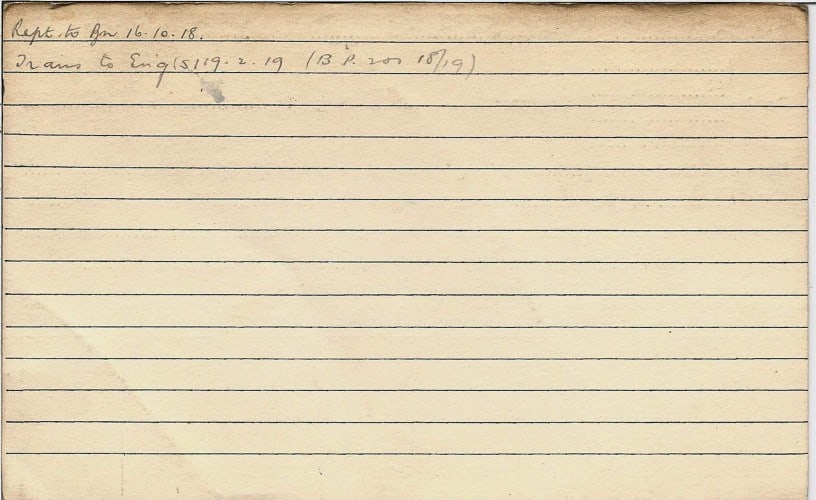 Rept. to Bn 16.10.18.
Trans to Eng (S) 19.2.19 (B P. 201 18/19)